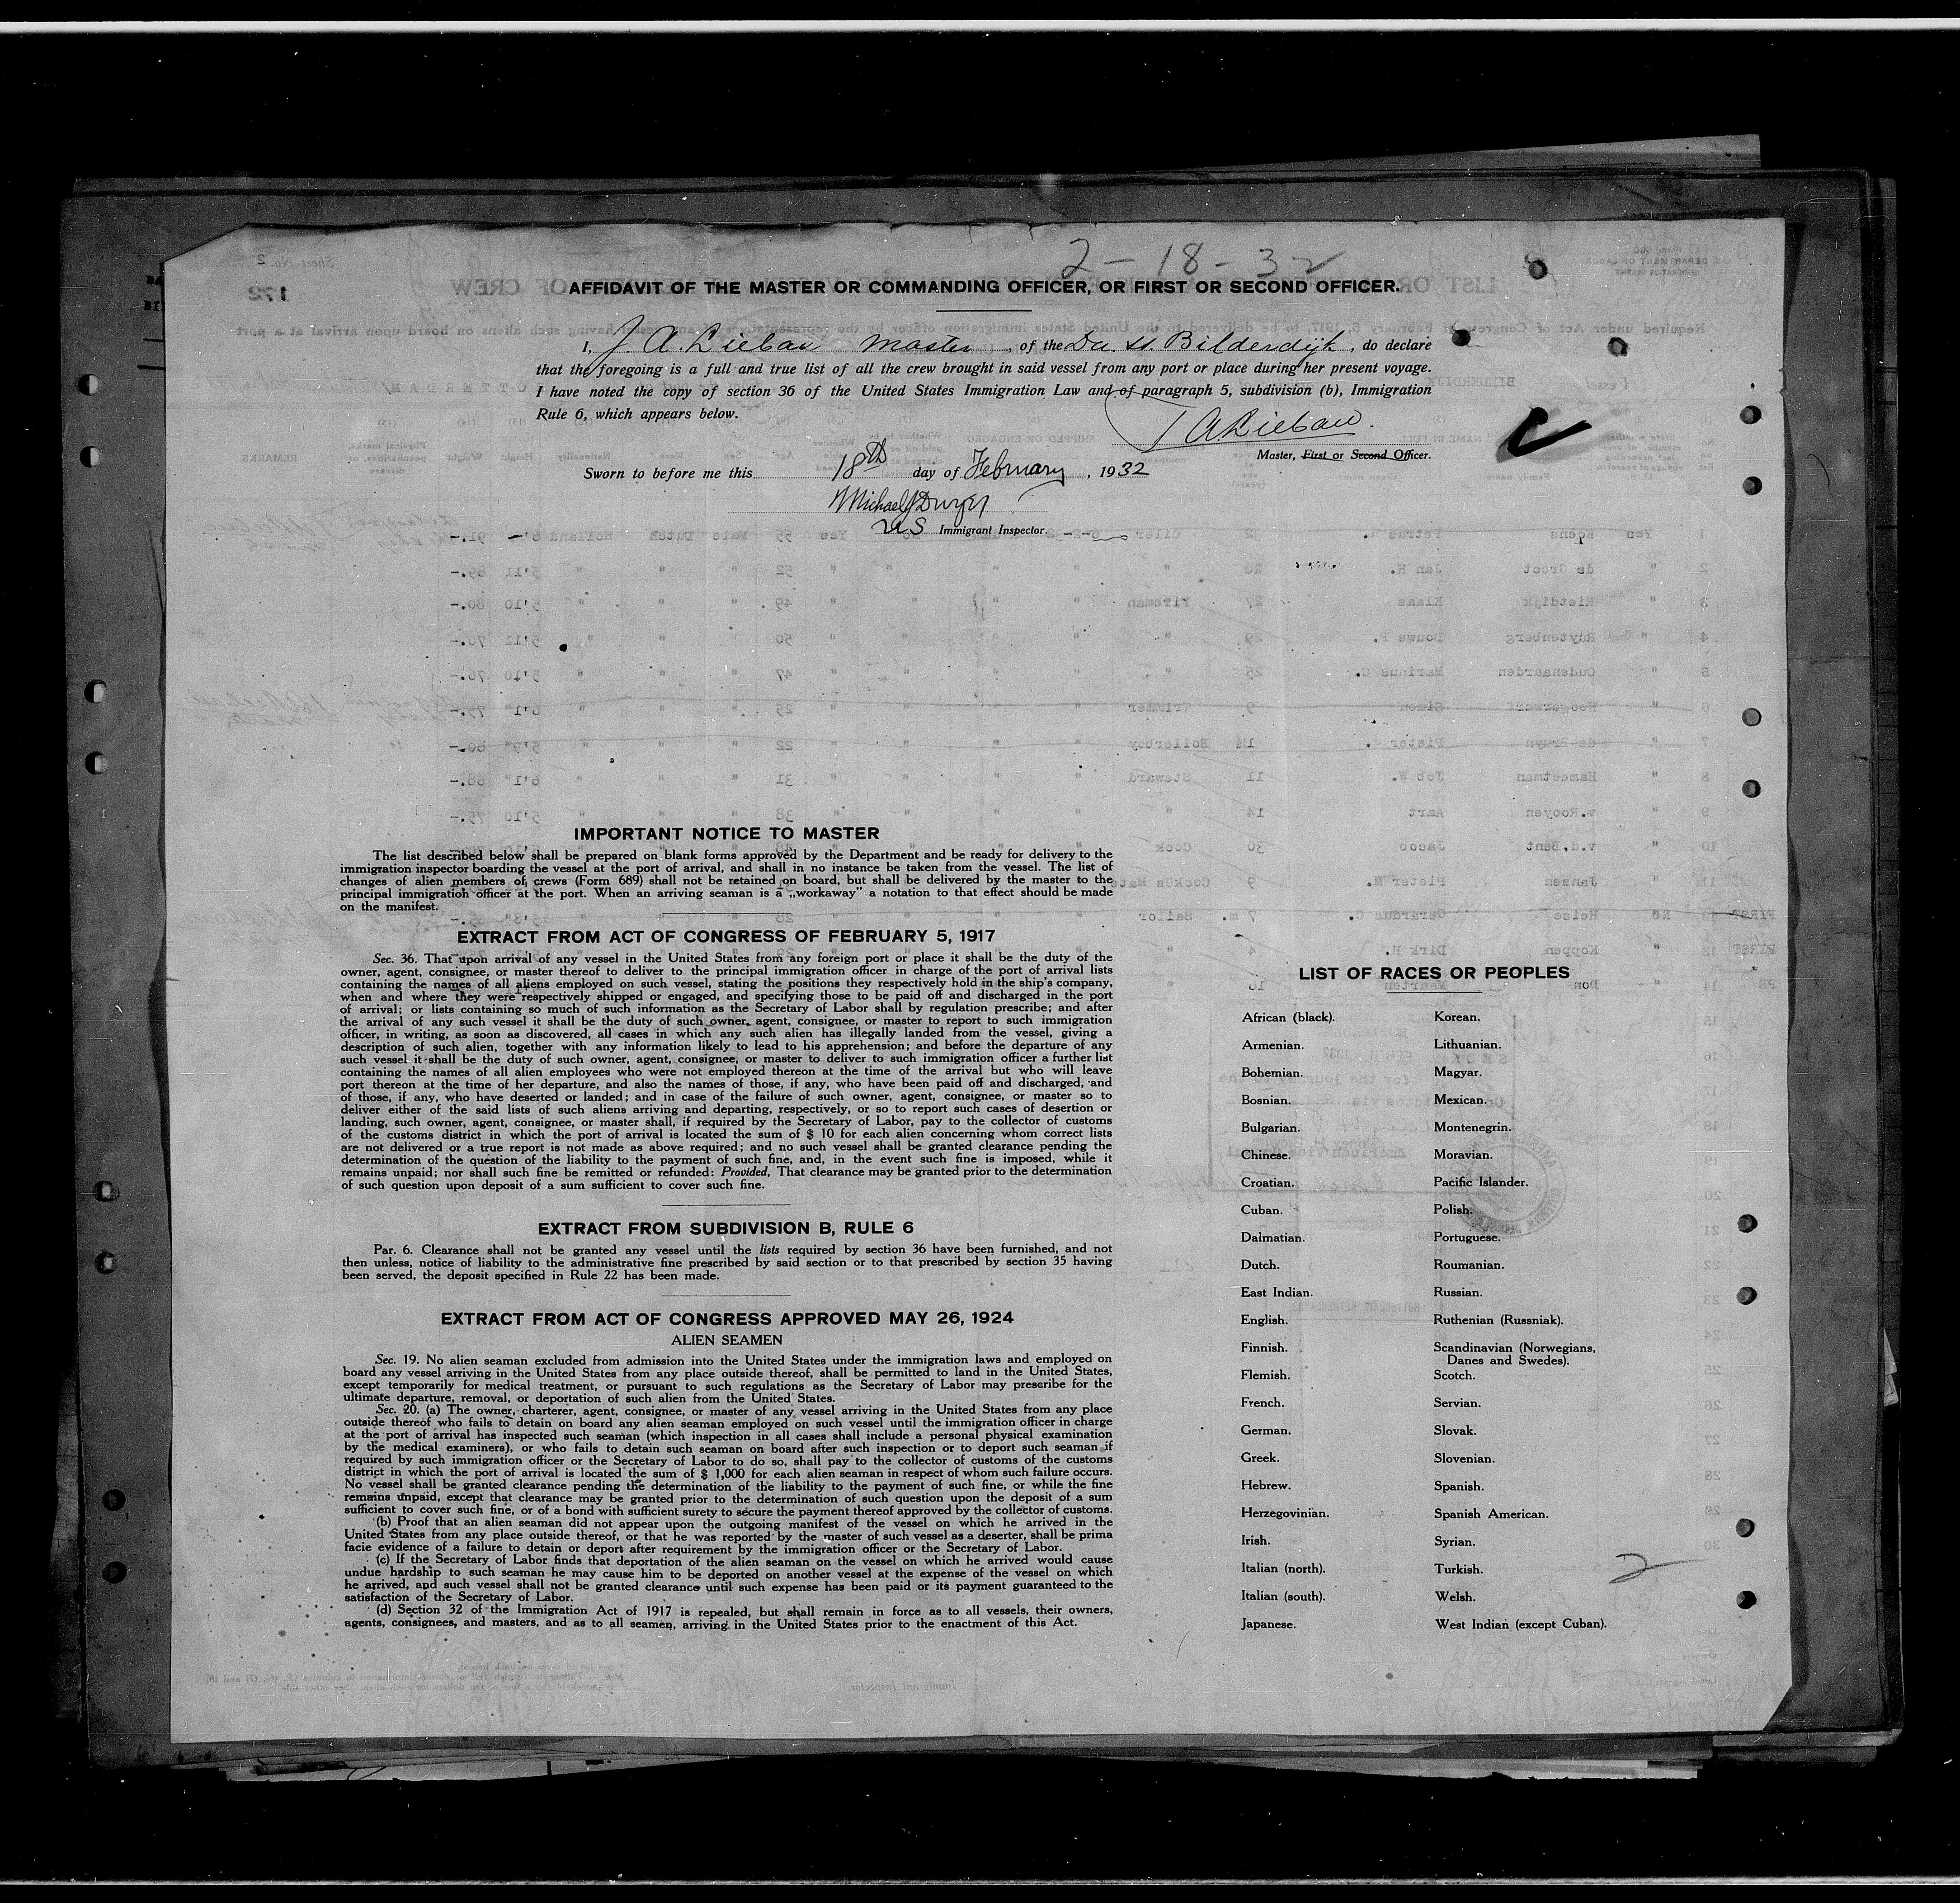 2-18-32
AFFIDAVIT OF THE MASTER OR COMMANDING OFFICER, OR FIRST OR SECOND OFFICER.
I, J. A. Liebau master, of the Du. SS. Bilderdijk, do declare
that the foregoing is a full and true list of all the crew brought in said vessel from any port or place during her present voyage.
I have noted the copy of section 36 of the United States Immigration Law and of paragraph 5, subdivision (b), Immigration
Rule 6, which appears below.
J A Liebau.
Master, First or Second Officer.
Sworn to before me this 18th day of February, 1932
Michael J Dwyer
US Immigrant Inspector.
IMPORTANT NOTICE TO MASTER
The list described below shall be prepared on blank forms approved by the Department and be ready for delivery to the
immigration inspector boarding the vessel at the port of arrival, and shall in no instance be taken from the vessel. The list of
changes of alien members of crews (Form 689) shall not be retained on board, but shall be delivered by the master to the
principal immigration officer at the port. When an arriving seaman is a „workaway” a notation to that effect should be made
on the manifest.
EXTRACT FROM ACT OF CONGRESS OF FEBRUARY 5, 1917
Sec. 36. That upon arrival of any vessel in the United States from any foreign port or place it shall be the duty of the
owner, agent, consignee, or master thereof to deliver to the principal immigration officer in charge of the port of arrival lists
containing the names of all aliens employed on such vessel, stating the positions they respectively hold in the ship's company,
when and where they were respectively shipped or engaged, and specifying those to be paid off and discharged in the port
of arrival; or lists containing so much of such information as the Secretary of Labor shall by regulation prescribe; and after
the arrival of any such vessel it shall be the duty of such owner, agent, consignee, or master to report to such immigration
officer, in writing, as soon as discovered, all cases in which any such alien has illegally landed from the vessel, giving a
description of such alien, together with any information likely to lead to his apprehension; and before the departure of any
such vessel it shall be the duty of such owner, agent, consignee, or master to deliver to such immigration officer a further list
containing the names of all alien employees who were not employed thereon at the time of the arrival but who will leave
port thereon at the time of her departure, and also the names of those, if any, who have been paid off and discharged, and
of those, if any, who have deserted or landed; and in case of the failure of such owner, agent, consignee, or master so to
deliver either of the said lists of such aliens arriving and departing, respectively, or so to report such cases of desertion or
landing, such owner, agent, consignee, or master shall, if required by the Secretary of Labor, pay to the collector of customs
of the customs district in which the port of arrival is located the sum of $ 10 for each alien concerning whom correct lists
are not delivered or a true report is not made as above required; and no such vessel shall be granted clearance pending the
determination of the question of the liability to the payment of such fine, and, in the event such fine is imposed, while it
remains unpaid; nor shall such fine be remitted or refunded: Provided, That clearance may be granted prior to the determination
of such question upon deposit of a sum sufficient to cover such fine.
EXTRACT FROM SUBDIVISION B, RULE 6
Par. 6. Clearance shall not be granted any vessel until the lists required by section 36 have been furnished, and not
then unless, notice of liability to the administrative fine prescribed by said section or to that prescribed by section 35 having
been served, the deposit specified in Rule 22 has been made.
EXTRACT FROM ACT OF CONGRESS APPROVED MAY 26, 1924
ALIEN SEAMEN
Sec. 19. No alien seaman excluded from admission into the United States under the immigration laws and employed on
board any vessel arriving in the United States from any place outside thereof, shall be permitted to land in the United States,
except temporarily for medical treatment, or pursuant to such regulations as the Secretary of Labor may prescribe for the
ultimate departure, removal, or deportation of such alien from the United States.
Sec. 20. (a) The owner, charterer, agent, consignee, or master of any vessel arriving in the United States from any place
outside thereof who fails to detain on board any alien seaman employed on such vessel until the immigration officer in charge
at the port of arrival has inspected such seaman (which inspection in all cases shall include a personal physical examination
by the medical examiners), or who fails to detain such seaman on board after such inspection or to deport such seaman if
required by such immigration officer or the Secretary of Labor to do so, shall pay to the collector of customs of the customs
district in which the port of arrival is located the sum of $ 1,000 for each alien seaman in respect of whom such failure occurs.
No vessel shall be granted clearance pending the determination of the liability to the payment of such fine, or while the fine
remains unpaid, except that clearance may be granted prior to the determination of such question upon the deposit of a sum
sufficient to cover such fine, or of a bond with sufficient surety to secure the payment thereof approved by the collector of customs.
(b) Proof that an alien seaman did not appear upon the outgoing manifest of the vessel on which he arrived in the
United States from any place outside thereof, or that he was reported by the master of such vessel as a deserter, shall be prima
facie evidence of a failure to detain or deport after requirement by the immigration officer or the Secretary of Labor.
(c) If the Secretary of Labor finds that deportation of the alien seaman on the vessel on which he arrived would cause
undue hardship to such seaman he may cause him to be deported on another vessel at the expense of the vessel on which
he arrived, and such vessel shall not be granted clearance until such expense has been paid or its payment guaranteed to the
satisfaction of the Secretary of Labor.
(d) Section 32 of the Immigration Act of 1917 is repealed, but shall remain in force as to all vessels, their owners,
agents, consignees, and masters, and as to all seamen, arriving in the United States prior to the enactment of this Act.
LIST OF RACES OR PEOPLES
African (black).
Armenian.
Bohemian.
Bosnian.
Bulgarian.
Chinese.
Croatian.
Cuban.
Dalmatian.
Dutch.
East Indian.
English.
Finnish.
Flemish.
French.
German.
Greek.
Hebrew.
Herzegovinian.
Irish.
Italian (north).
Italian (south).
Japanese.
Korean.
Lithuanian.
Magyar.
Mexican.
Montenegrin.
Moravian.
Pacific Islander.
Polish.
Portuguese.
Roumanian.
Russian.
Ruthenian (Russniak).
Scandinavian (Norwegians,
Danes and Swedes).
Scotch.
Servian.
Slovak.
Slovenian.
Spanish.
Spanish American.
Syrian.
Turkish.
Welsh.
West Indian (except Cuban).
2